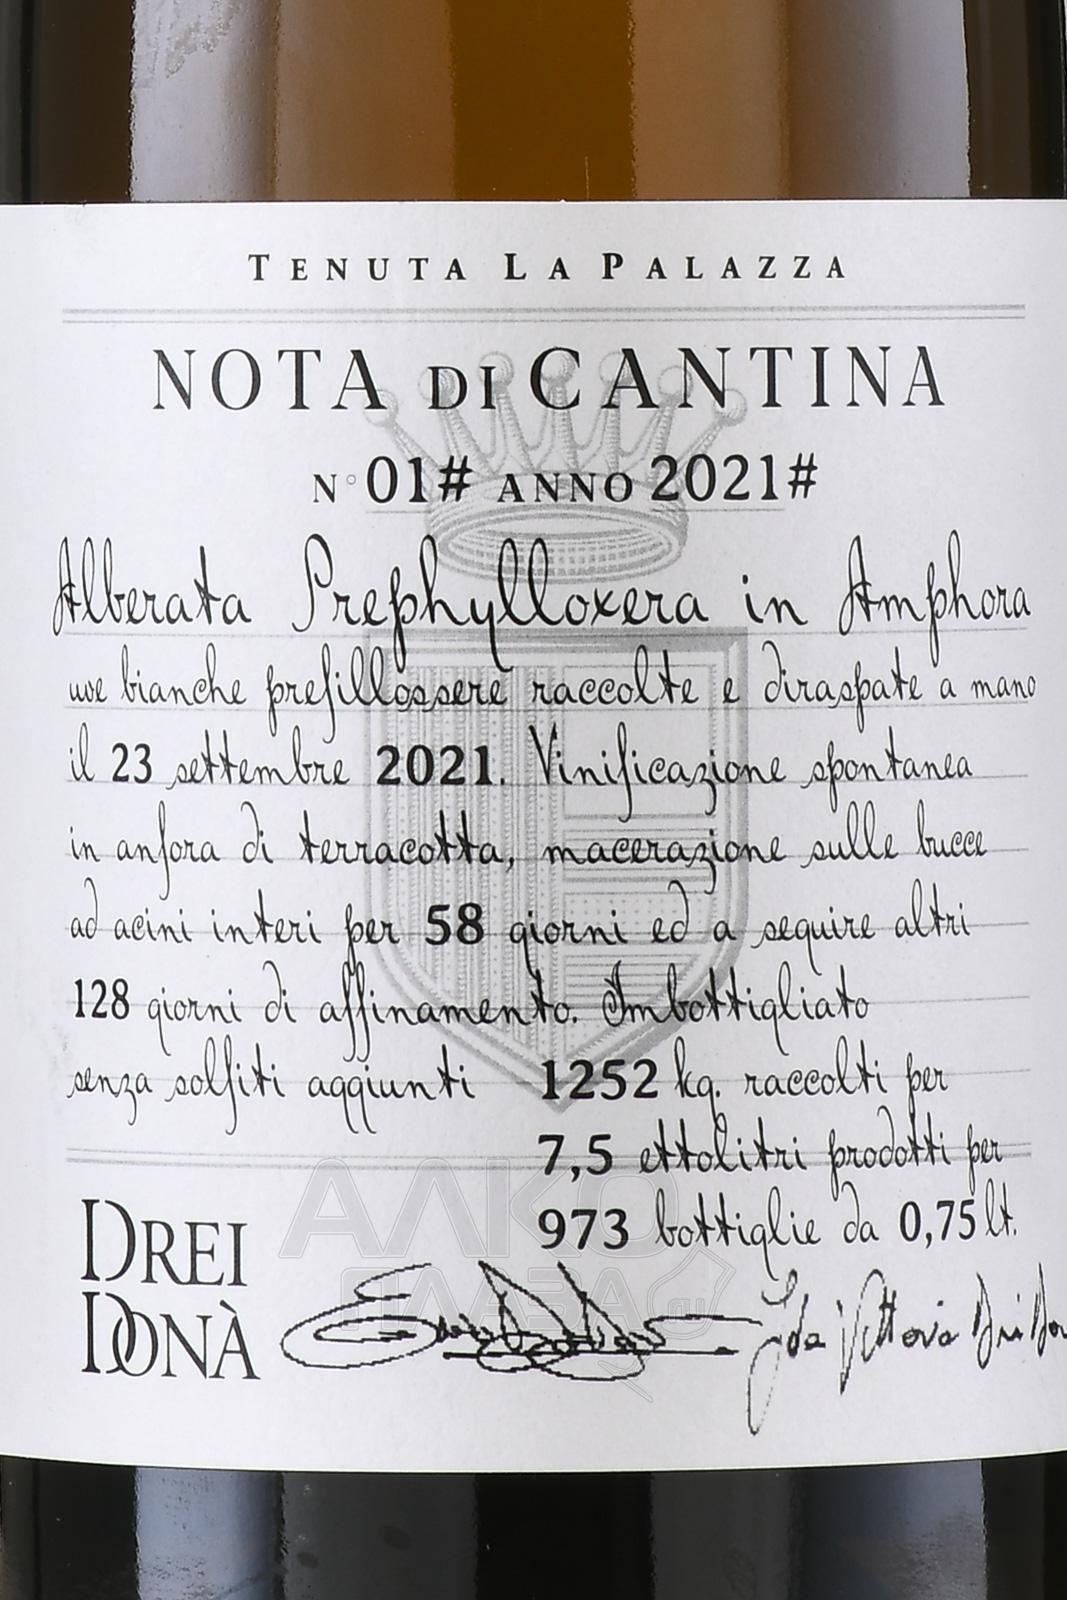 TENUTA LA PALAZZA
NOTA DI CANTINA
N° 01# ANNO 2021#
Alberata Prephylloxera in Amphora
uve bianche prefillossere raccolte e diraspate a mano
il 23 settembre 2021. Vinificazione spontanea
in anfora di terracotta, macerazione sulle bucce
ad acini interi per 58 giorni ed a seguire altri
128 giorni di affinamento. Imbottigliato
senza solfiti aggiunti 1252 kg. raccolti per
7,5 ettolitri prodotti per
973 bottiglie da 0,75 lt.
DREI
DONÀ
Ida Vittoria Drei
АЛКО
ПЛАЗА
RU